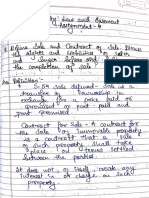 Property Law and Easement
Assignment-4
Define Sale and Contract of Sale. Discuss
the Rights and Liabilities of Seller
and Buyer before and
the completion of sale
Definition -
S-54 sale defined - Sale is a
transfer of ownership in
exchange for a price paid or
promised or part paid and
part promised
Contract for Sale - A contract for
the sale of Immovable property
is a contract that a sale
of such property shall take
place on terms settled
between the parties.
It does not, of itself, create any
interest in or charge on such
property